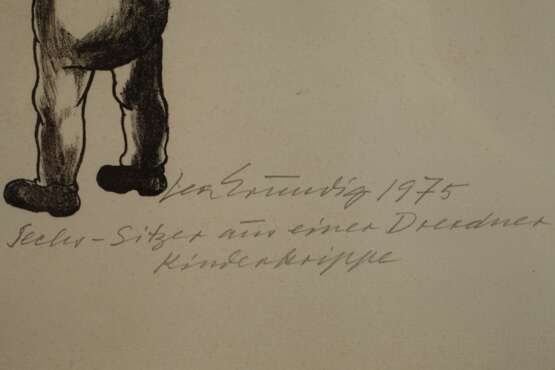 Lea Grundig 1975
Sechs-Sitzer aus einer Dresdner
Kinderkrippe